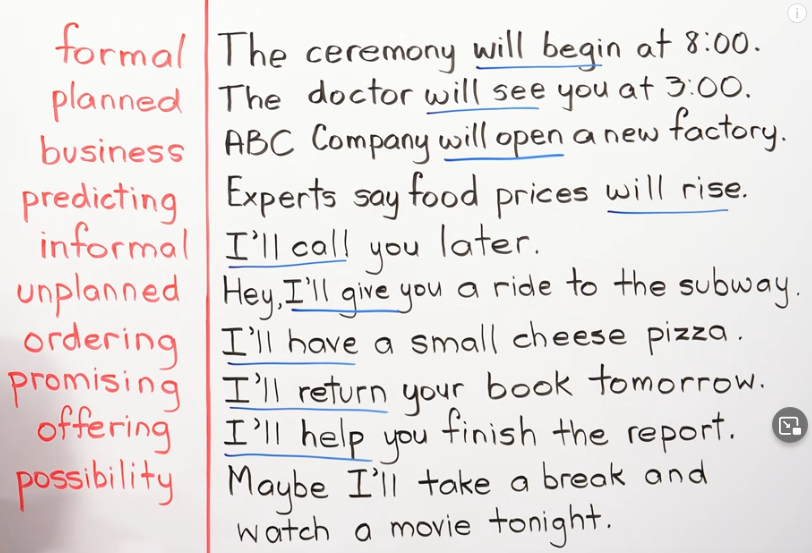 formal The ceremony will begin at 8:00.
planned The doctor will see you at 3:00.
business ABC Company will open a new factory.
predicting Experts say food prices will rise.
informal I'll call you later.
unplanned Hey, I'll give you a ride to the subway.
ordering I'll have a small cheese pizza.
promising I'll return your book tomorrow.
offering I'll help you finish the report.
possibility Maybe I'll take a break and
watch a movie tonight.